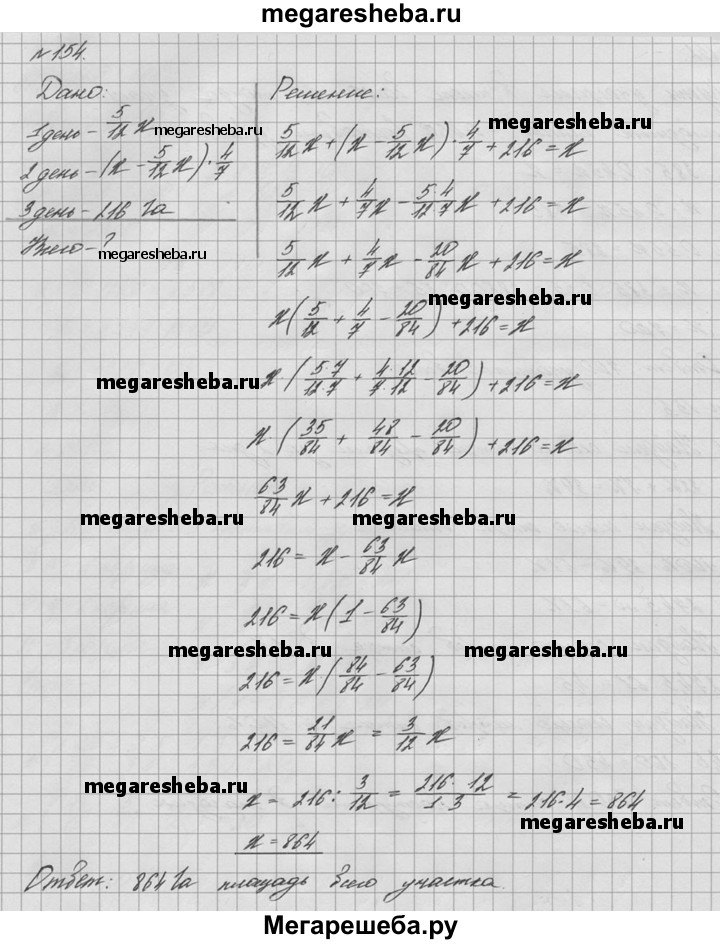 megaresheba.ru
№154.
Дано:
1 день - 5/12 x
2 день - (x - 5/12 x) · 4/7
3 день - 216 га
Всего - ?
Решение:
5/12 x + (x - 5/12 x) · 4/7 + 216 = x
5/12 x + 4/7 x - 5·4/12·7 x + 216 = x
5/12 x + 4/7 x - 20/84 x + 216 = x
x (5/12 + 4/7 - 20/84) + 216 = x
x (5·7/12·7 + 4·12/7·12 - 20/84) + 216 = x
x (35/84 + 48/84 - 20/84) + 216 = x
63/84 x + 216 = x
216 = x - 63/84 x
216 = x (1 - 63/84)
216 = x (84/84 - 63/84)
216 = 21/84 x = 3/12 x
x = 216 : 3/12 = 216·12/1·3 = 216·4 = 864
x = 864
Ответ: 864 га площадь всего участка.
megaresheba.ru
megaresheba.ru
megaresheba.ru
megaresheba.ru
megaresheba.ru
megaresheba.ru
megaresheba.ru
megaresheba.ru
megaresheba.ru
megaresheba.ru
megaresheba.ru
Мегарешеба.ру